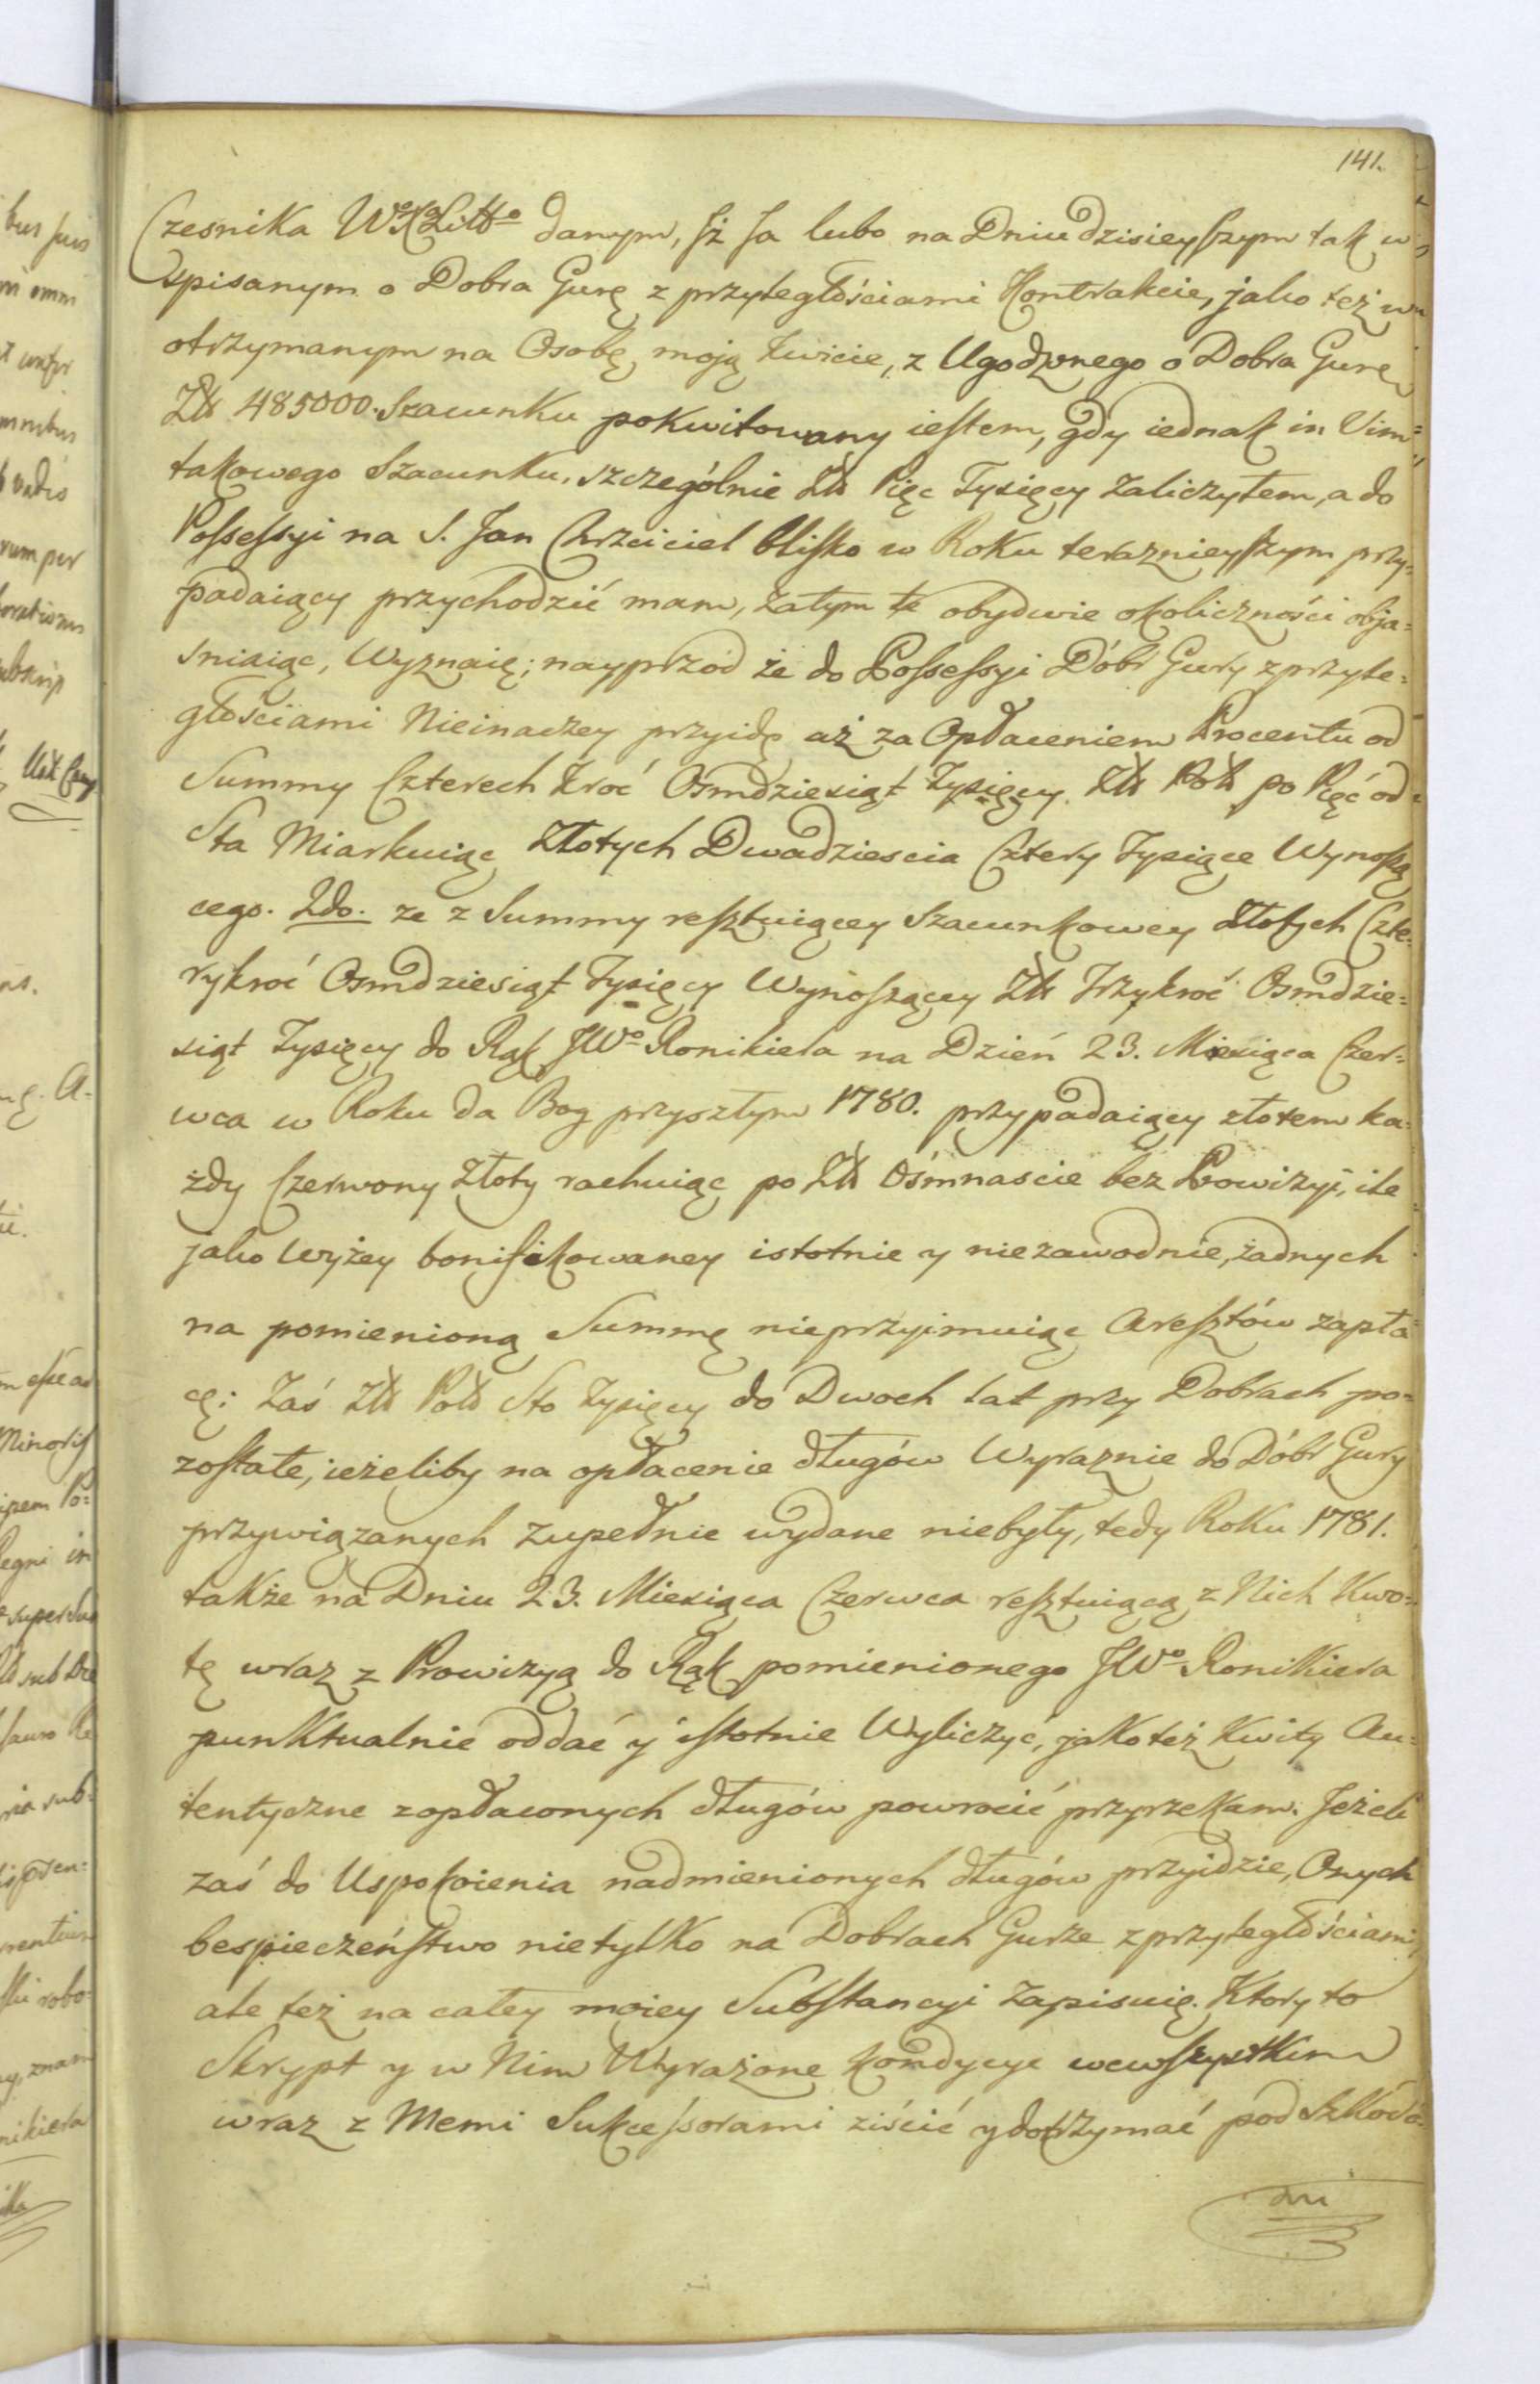 141.
Czesnika W° X° Littgo danym, Jż Ja lubo na Dniu dzisieyszym tak w
spisanym o Dobra Gurę z przyległościami Kontrakcie, jako też w
otrzymanym na Osobę moją kwicie, z Ugodzonego o Dobra Gurę
Złł 485000. Szacunku pokwitowany iestem, gdy iednak in Vim
takowego Szacunku, szczególnie Złł Pięc Tysięcy zaliczyłem, a do
Possessyi na S. Jan Chrzciciel blisko w Roku teraznieyszym przy=
padaiący przychodzić mam, zatym te obydwie okoliczności obja=
sniaiąc, Wyznaię; nayprzod że do Possessyi Dóbr Gury z przyle=
głościami Nieinaczey przyidę aż za Opłaceniem Procentu od
Summy Czterech kroć Osmdziesiąt Tysięcy Złł Polł po Pięć od
Sta Miarkuiąc Złotych Dwadziescia Cztery Tysiące Wynoszą
cego. 2do. ze z Summy resztuiącey Szacunkowey Złotych Czte=
rykroć Osmdziesiąt Tysięcy Wynoszącey Złł Trzykroć Osmdzie=
siąt Tysięcy do Rąk JW° Ronikiera na Dzień 23. Miesiąca Czer=
wca w Roku da Bog przyszłym 1780. przypadaiący złotem ka=
żdy Czerwony Złoty rachuiąc po Złł Ośmnascie bez Prowizyi, ile
jako wyżey bonifikowaney istotnie y niezawodnie, żadnych
na pomienioną Summę nieprzyimuiąc Aresztów zapła
cę: Zaś Złł Polł Sto Tysięcy do Dwoch lat przy Dobrach po=
zostałe, ieżeliby na opłacenie długów Wyraznie do Dóbr Gury
przywiązanych zupełnie wydane niebyły, tedy Roku 1781.
także na Dniu 23. Miesiąca Czerwca resztuiącą z Nich Kwo=
tę wraz z Prowizyą do Rąk pomienionego JW° Ronikiera
punktualnie oddać y istotnie Wyliczyć, jako też Kwity Au=
tentyczne z opłaconych długów powrocić przyrzekam. Jeżeli
zaś do Uspokoienia nadmienionych długów przyidzie, Onych
bespieczeństwo nietylko na Dobrach Gurze z przyległościami
ale też na całey moiey Substancyi zapisuię. Ktory to
Skrypt y w Nim Wyrażone kondycye wewszystkim
wraz z Memi Sukcessorami ziścić y dotrzymać pod Szkoda=
mi